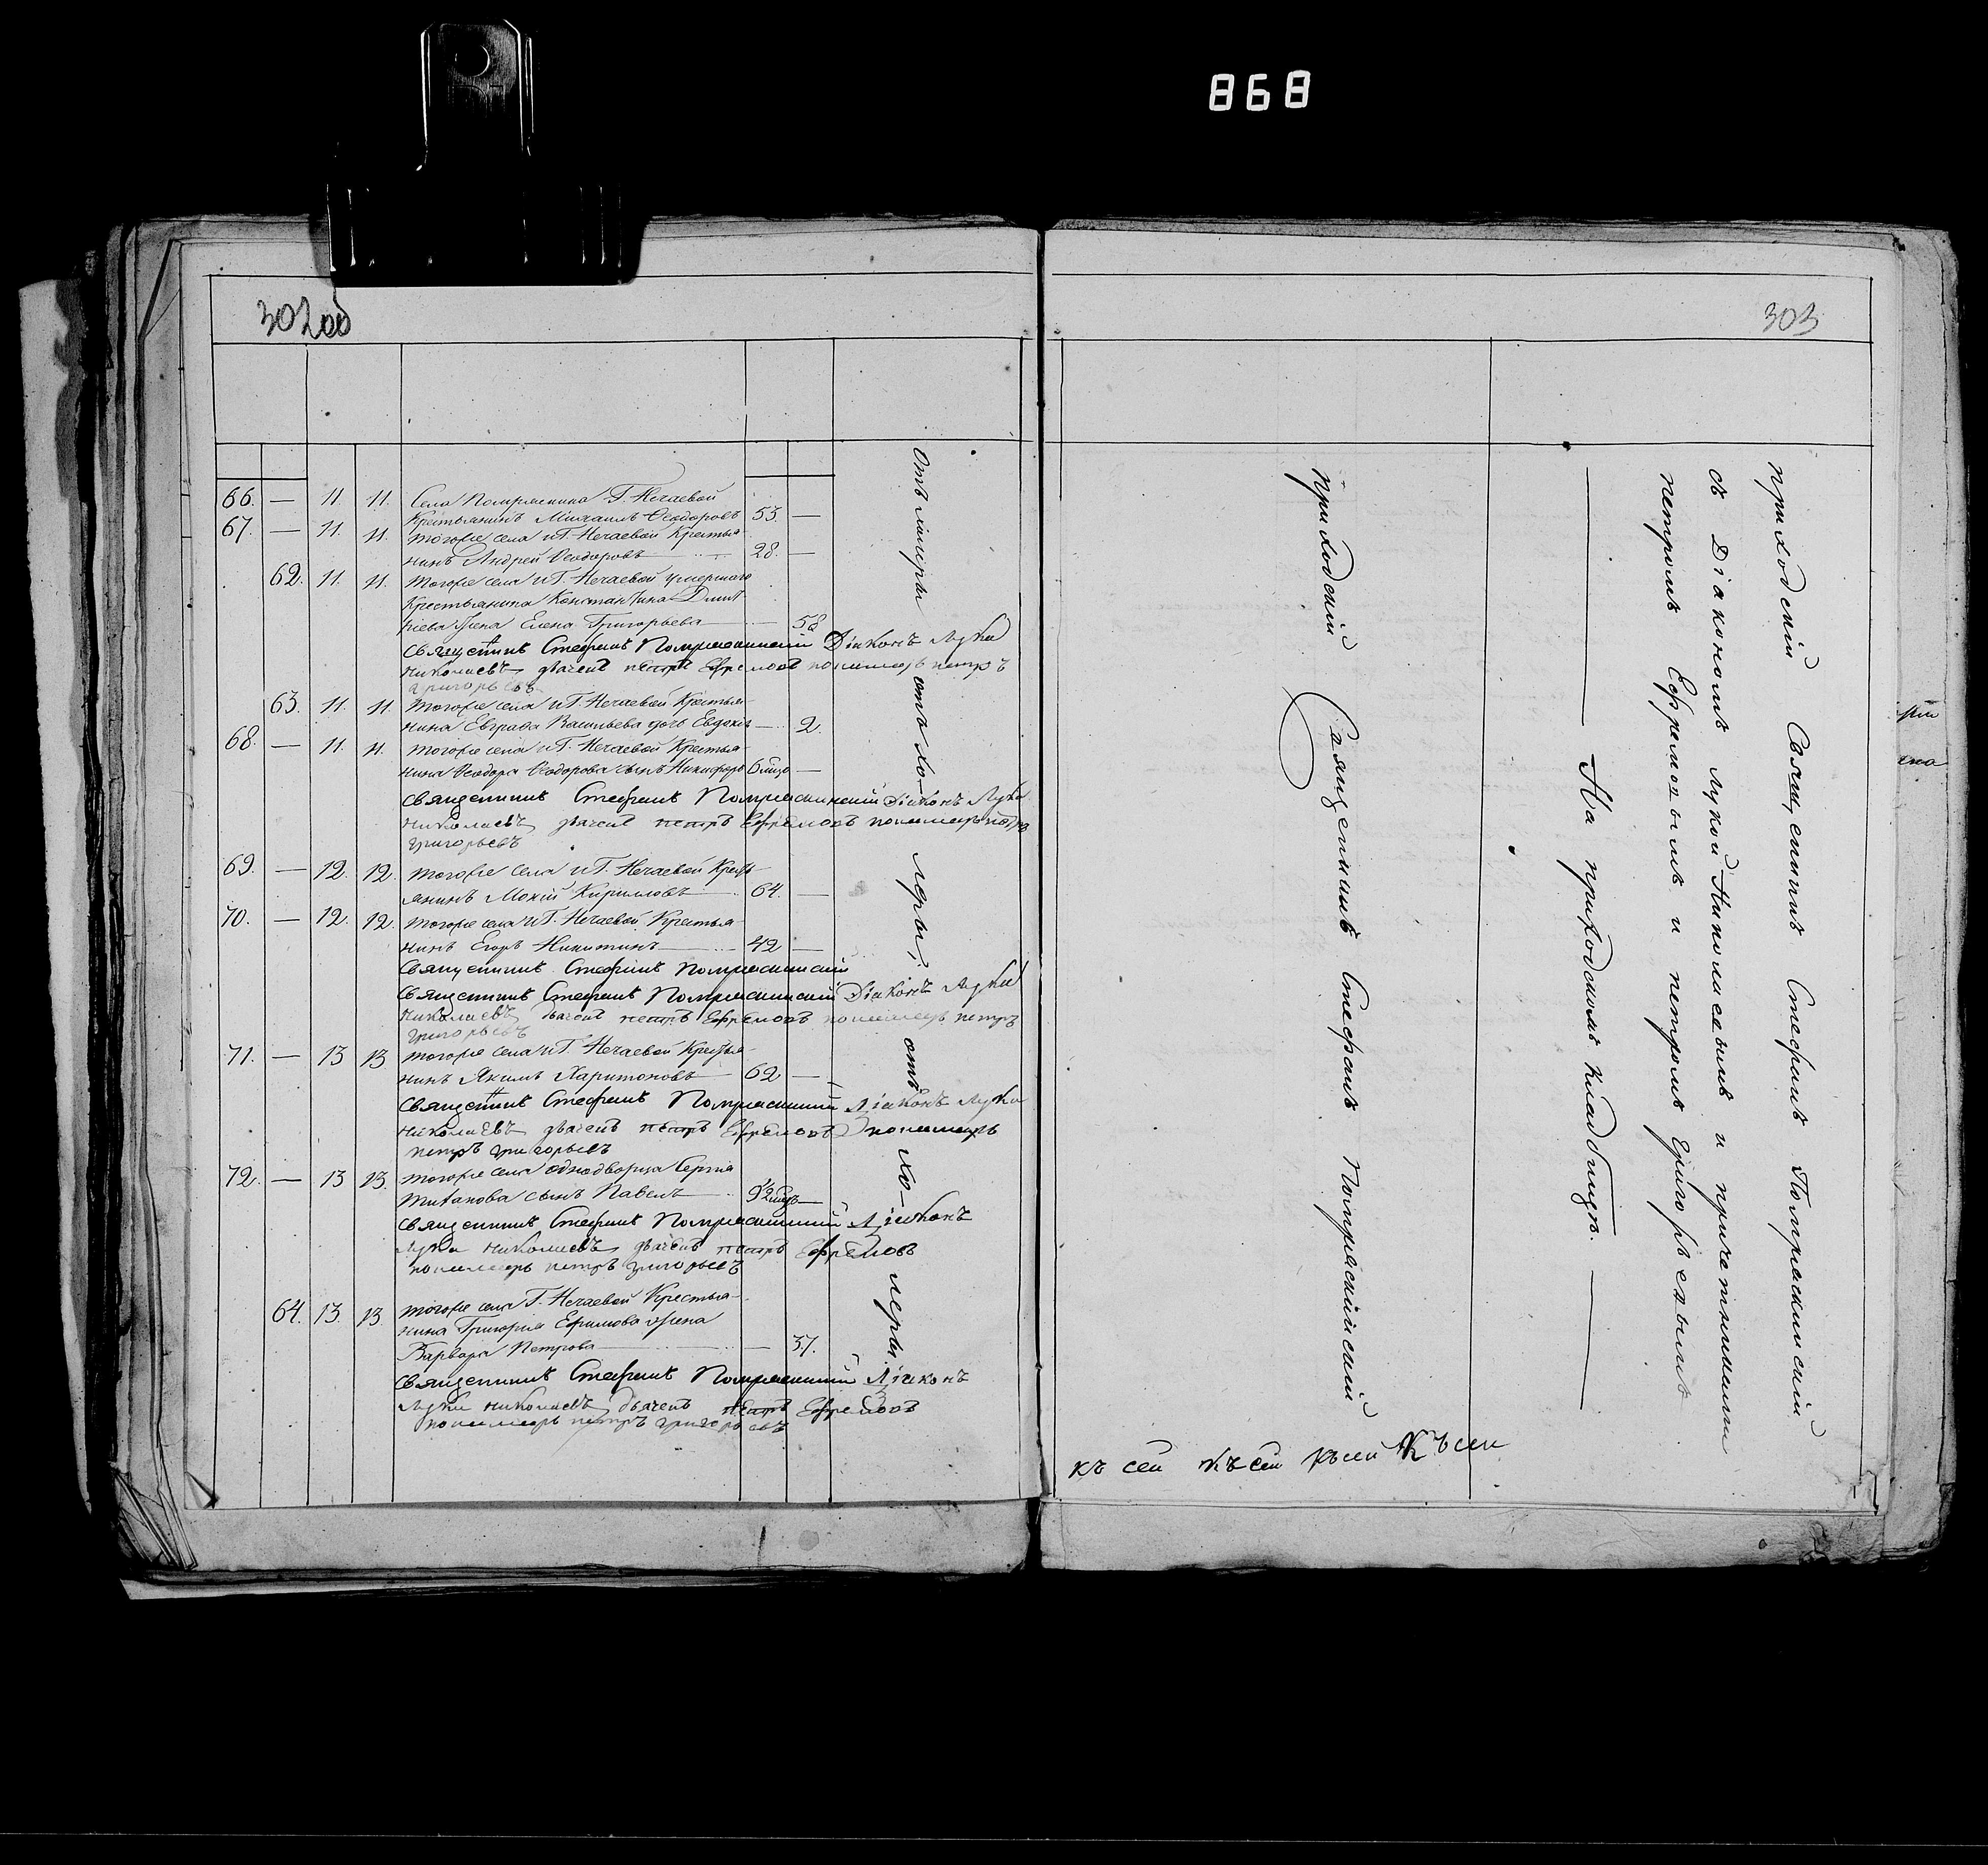 868
302об
303
66. — 11. 11. Села Помряскина Г. Нечаевой
Крестьянинъ Михаилъ Ѳеодоровъ 53. —
67. — 11. 11. тогоже села и Г. Нечаевой Крестья
нинъ Андрей Ѳеодоровъ — 28. —
62. 11. 11. Тогоже села и Г. Нечаевой умершаго
Крестьянина Константина Дмит
ріева Жена Елена Григорьева — 58
Священникъ Стефанъ Помряскинскій Діаконъ Лука
Николаевъ дьячекъ петръ Ефремовъ пономарь петръ
григорьевъ
63. 11. 11. Тогоже села и Г. Нечаевой Крестья
нина Евграфа Васильева дочь Евдокія — 2.
68. — 11. 11. тогоже села и Г. Нечаевой Крестья-
нина Ѳеодора Ѳеодорова сынъ Никифоръ 6 —
Священникъ Стефанъ Помряскинскій Діаконъ Лука
Николаевъ дьячекъ петръ Ефремовъ пономарь петръ
григорьевъ
69. — 12. 12. тогоже села и Г. Нечаевой Кресть-
янинъ Мокій Кириловъ — 64. —
70. — 12. 12. тогоже села и Г. Нечаевой Крестья-
нинъ Егоръ Никитинъ — 42 —
Священникъ Стефанъ Помряскинскій
Священникъ Стефанъ Помряскинскій Діаконъ Лука
Николаевъ дьячекъ петръ Ефремовъ пономарь петръ
григорьевъ
71. — 13 13 тогоже села и Г. Нечаевой Крестья-
нинъ Якимъ Харитоновъ — 62 —
Священникъ Стефанъ Помряскинскій Діаконъ Лука
Николаевъ дьячекъ петръ Ефремовъ пономарь
петръ григорьевъ
72. — 13 13. тогоже села однодворца Сергія
Титанова сынъ Павелъ — 9½ —
Священникъ Стефанъ Помряскинскій Діаконъ
Лука Николаевъ дьячекъ петръ Ефремовъ
пономарь петръ григорьевъ
64. 13. 13. тогоже села Г. Нечаевой Крестья-
нина Григорія Ефимова жена
Варвара Петрова — 37.
Священникъ Стефанъ Помряскинскій Діаконъ
Лука Николаевъ дьячекъ петръ Ефремовъ
пономарь петръ григорьевъ
Отъ холеры отъ хо-леры, отъ хо-леры
приходскій Священникъ Стефанъ Помряскинскій
приходскій Священникъ Стефанъ Помряскинскій
съ Діакономъ Лукой Николаевымъ и причетниками
петромъ Ефремовымъ и петромъ Григорьевымъ
— На приходскомъ кладбищѣ. —
къ сей къ сей къ сей Къ сей